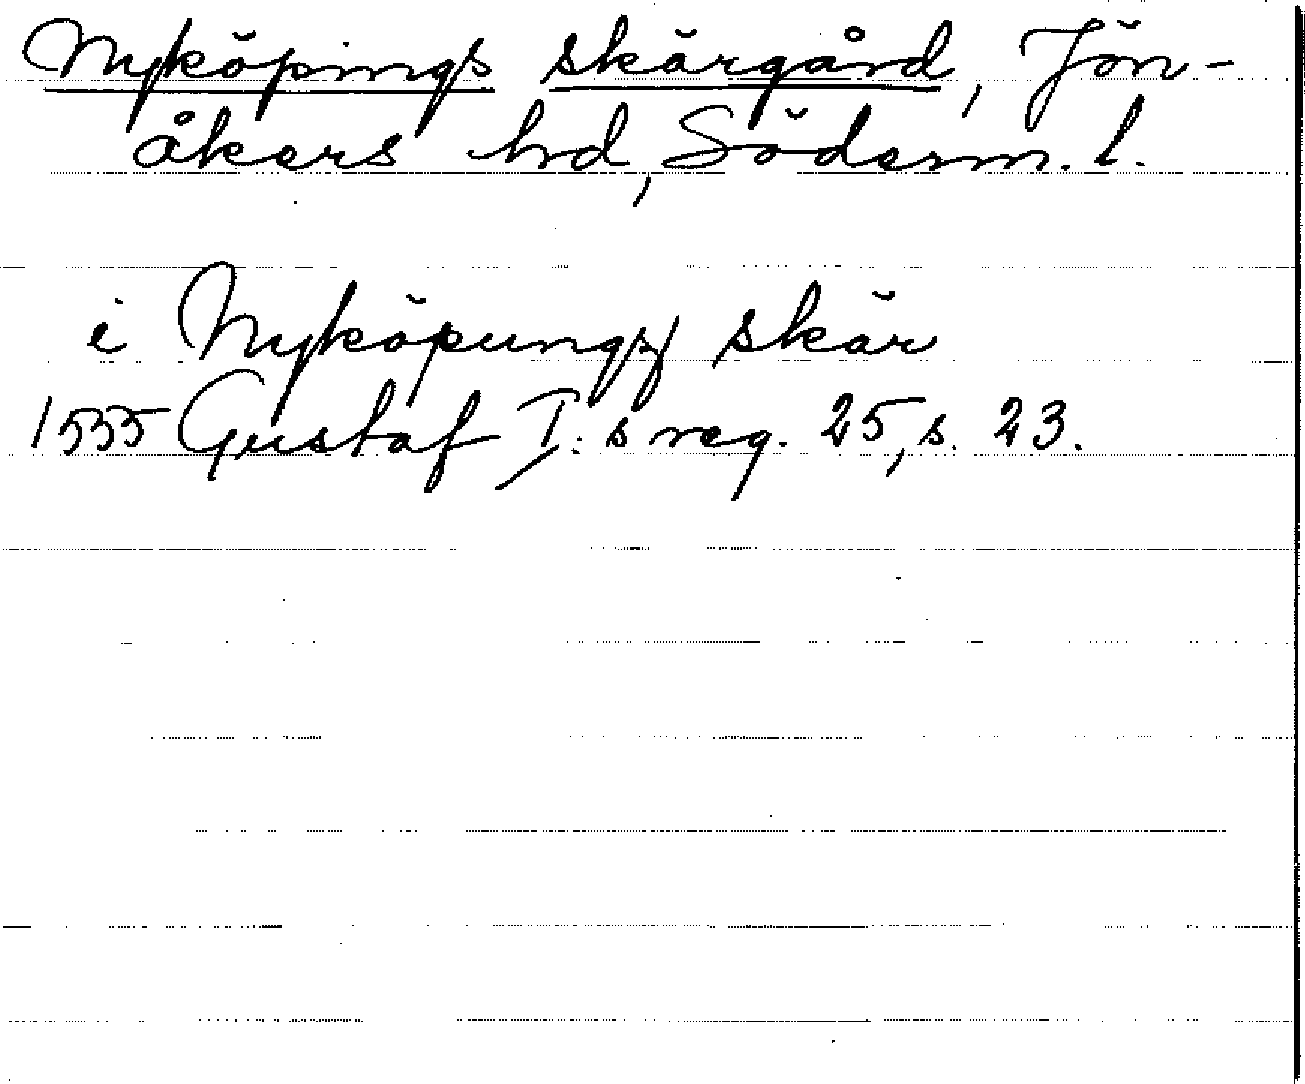 Nyköpings skärgård, Jön-
åkers hd, Söderm. l.
i Nyköpungz skär
1535 Gustaf I:s reg. 25, s. 23.